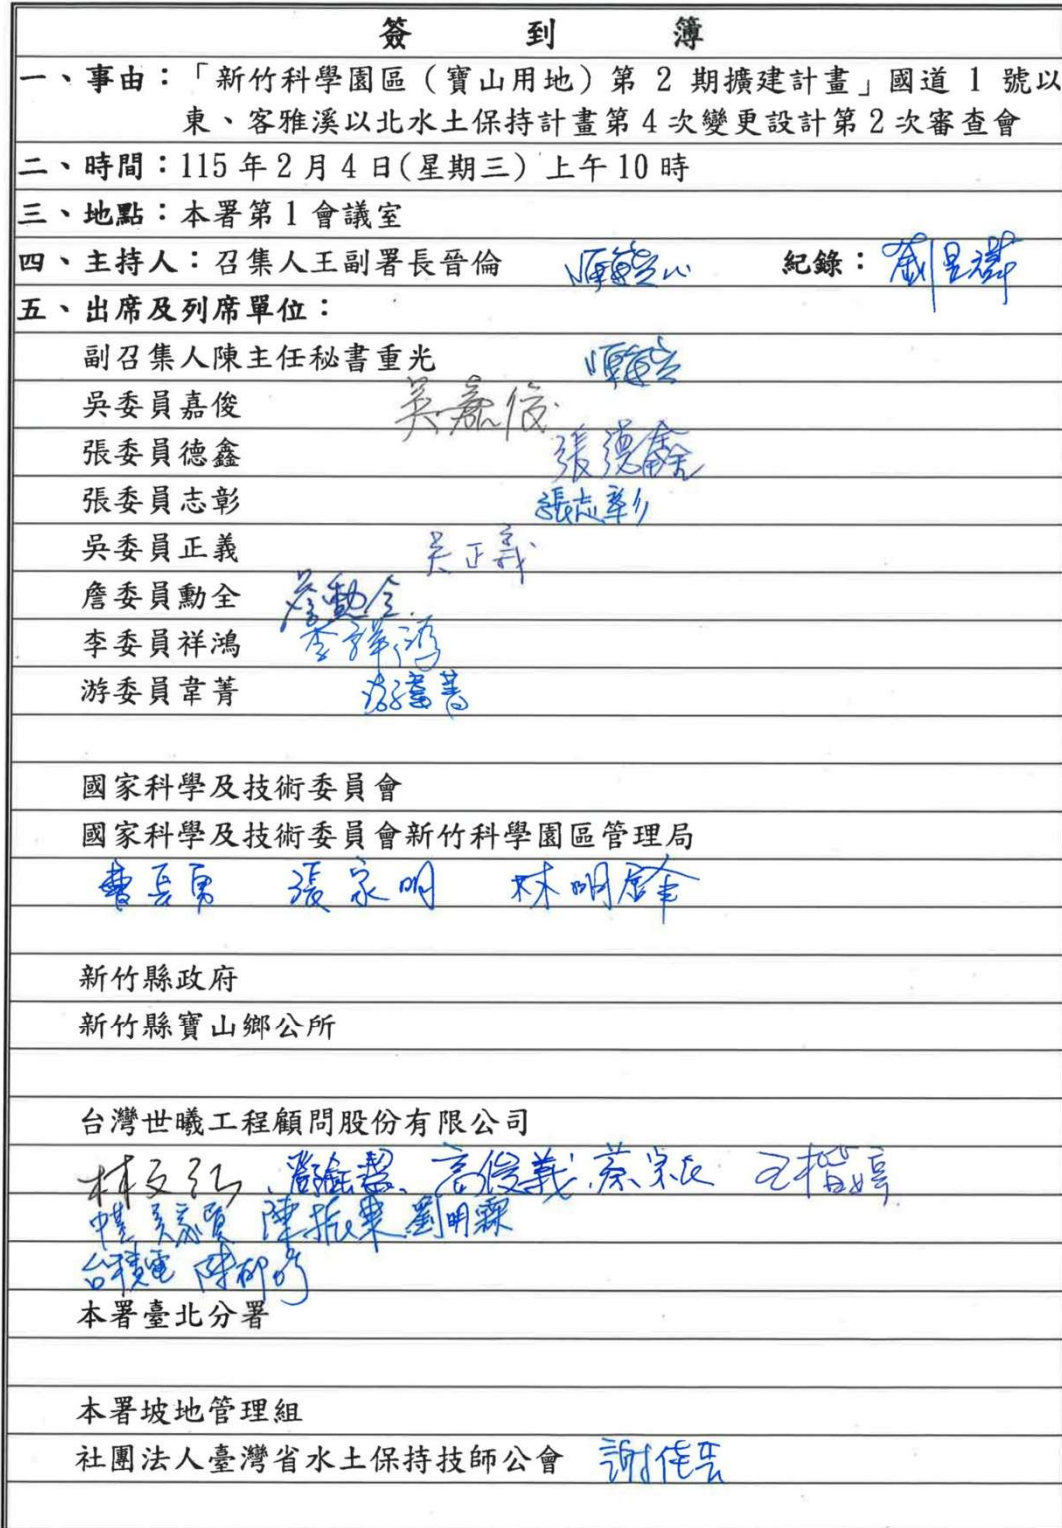 簽到簿
一、事由：「新竹科學園區（寶山用地）第 2 期擴建計畫」國道 1 號以
東、客雅溪以北水土保持計畫第 4 次變更設計第 2 次審查會
二、時間：115 年 2 月 4 日(星期三) 上午 10 時
三、地點：本署第 1 會議室
四、主持人：召集人王副署長晉倫 紀錄：
五、出席及列席單位：
副召集人陳主任秘書重光
吳委員嘉俊 吳嘉俊
張委員德鑫 張德鑫
張委員志彰 張志彰
吳委員正義 吳正義
詹委員勳全 詹勳全
李委員祥鴻 李祥鴻
游委員韋菁 游韋菁
國家科學及技術委員會
國家科學及技術委員會新竹科學園區管理局
張家明 林明
新竹縣政府
新竹縣寶山鄉公所
台灣世曦工程顧問股份有限公司
高俊義
陳振 劉明霖
台積電
本署臺北分署
本署坡地管理組
社團法人臺灣省水土保持技師公會 謝佳